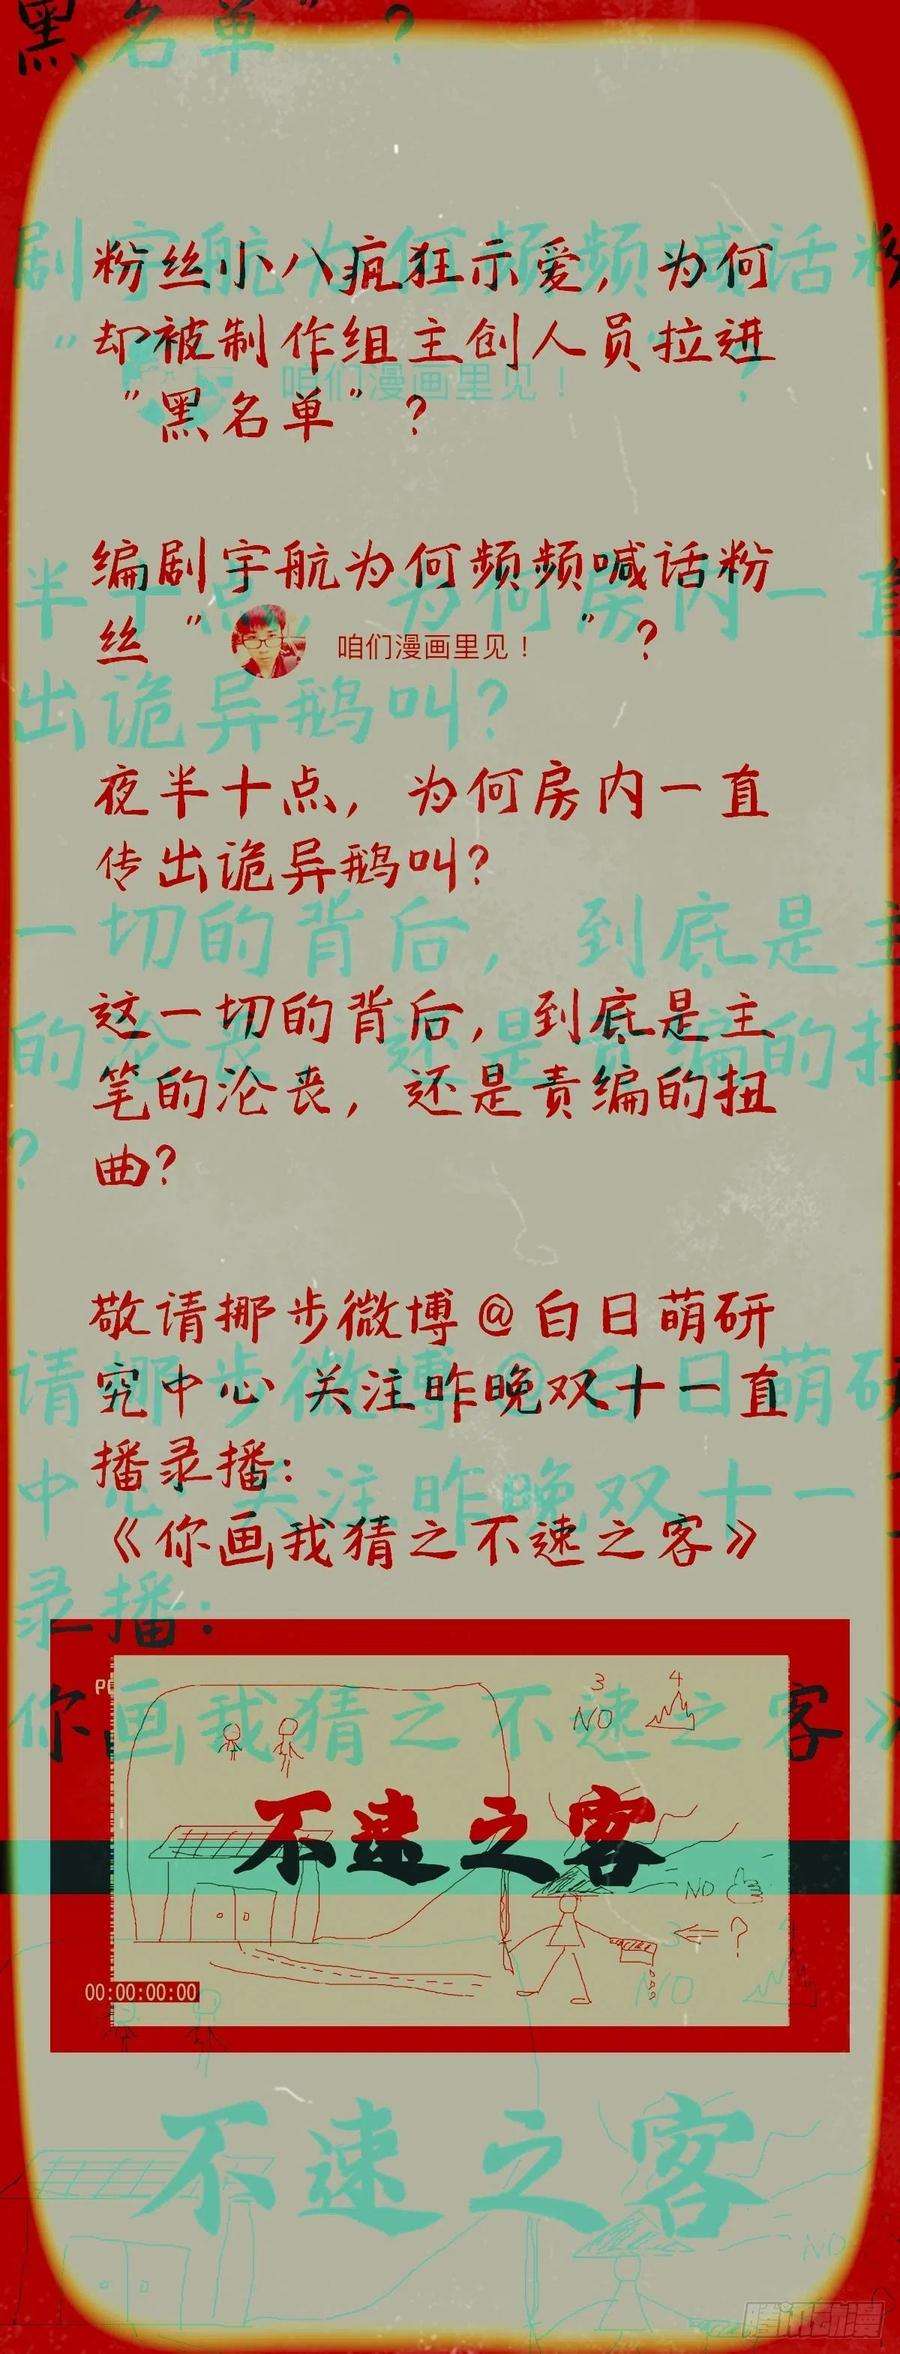 黑名单"?
粉丝小八疯狂示爱，为何
却被制作组主创人员拉进
"黑名单"?
编剧宇航为何频频喊话粉
丝" 咱们漫画里见！ "?
夜半十点，为何房内一直
传出诡异鹅叫?
这一切的背后，到底是主
笔的沦丧，还是责编的扭
曲?
敬请挪步微博@白日萌研
究中心 关注昨晚双十一直
播录播:
《你画我猜之不速之客》
3
4
NO
不速之客
NO
?
00:00:00:00
NO
不速之客
NO
腾讯动漫